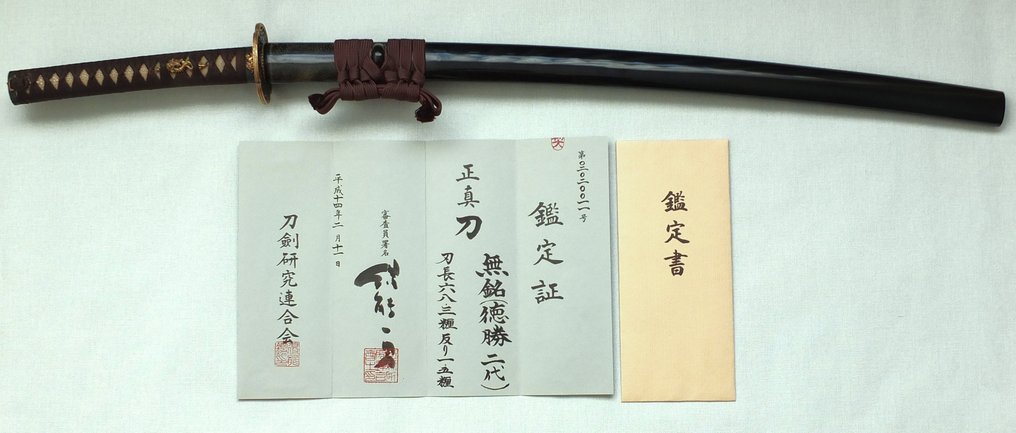 第０二０二００一一号
鑑定証
正真
刀
無銘(徳勝 二代)
刃長六八.三糎 反り一.五糎
審査員署名
平成十四年二月十一日
刀劍研究連合会
鑑定書